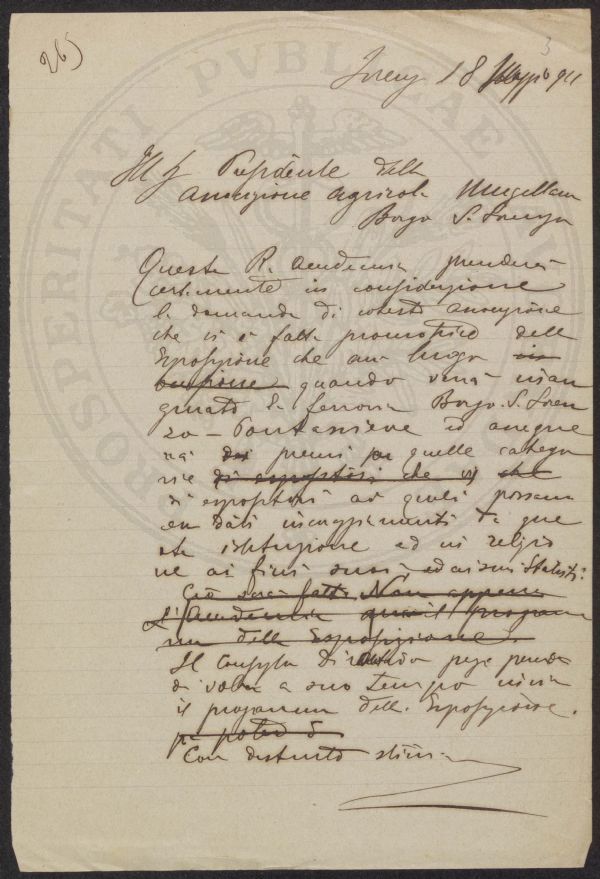 265
3
18 Maggio 911
Ill Presidente della
Associazione Agricola Mugellana
Borgo S. Lorenzo
Questa R. Accademia prenderà
certamente in considerazione
la domanda di cotesta Associazione
che si è fatta promotrice della
Esposizione che avrà luogo in
quando verrà inau
gurata la ferrovia Borgo S. Loren
zo - Pontassieve ed assegne
rà dei premi per quelle catego
rie di espositori che
di espositori ai quali possano
esser dati incoraggiamenti da que
sta istituzione ed in relazio
ne ai fini suoi, ed ai suoi Statuti.
Ciò sarà fatto Non appena
L'Accademia il program
ma della Esposizione
Il Consiglio prende
di voler a suo tempo inviar
il programma della Esposizione.
Con distinta stima
PROSPERITATI PVBLICAE